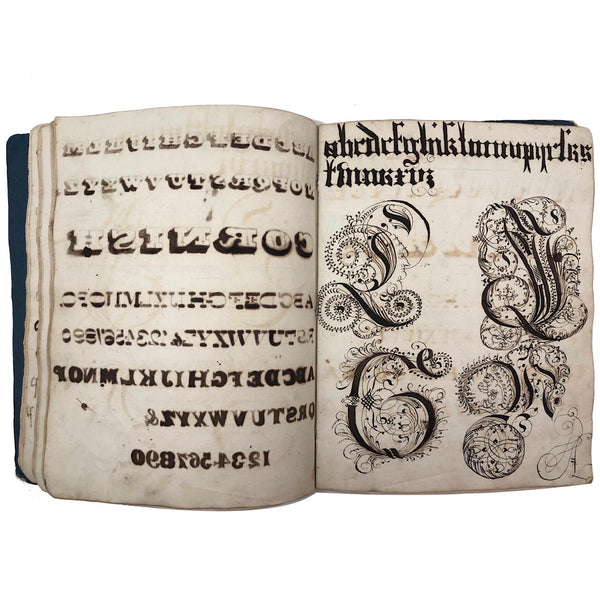 ABCDEFGHIJKLM
NOPQRSTUVWXYZ
CORNISH
ABCDEFGHIJKLMNOPQ
RSTUVWXYZ& 1234567890
ABCDEFGHIJKLMNOP
QRSTUVWXYZ&
1234567890
abcdefghiklmnopqrſs